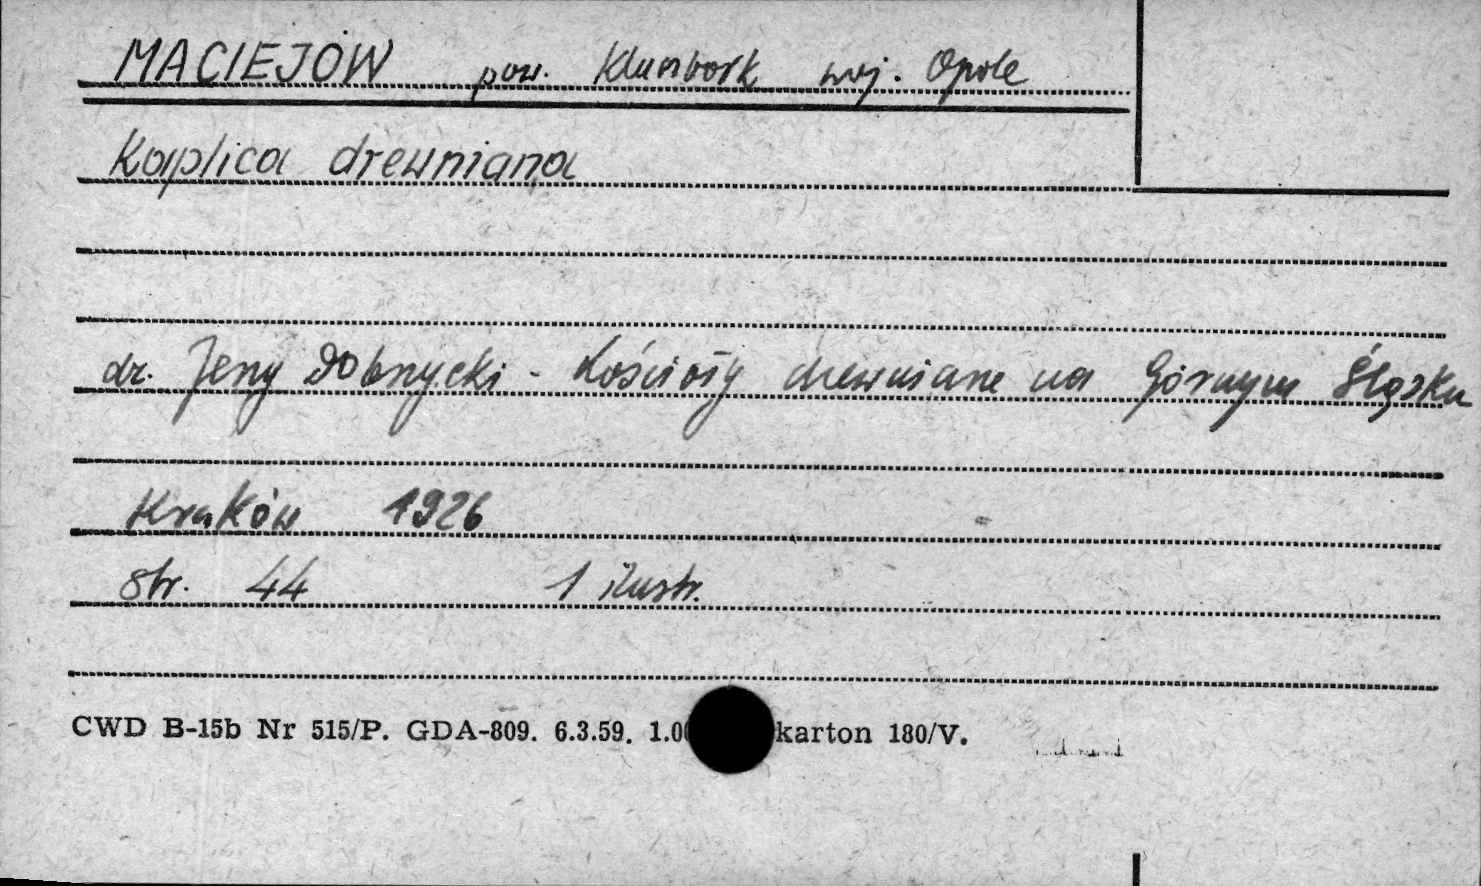 MACIEJÓW pow. Kluczbork woj. Opole
Kaplica drewniana
dr. Jerzy Dobrzycki - Kościoły drewniane na Górnym Śląsku
Kraków 1926
str. 44 1 ilustr.
CWD B-15b Nr 515/P. GDA-809. 6.3.59. karton 180/V.